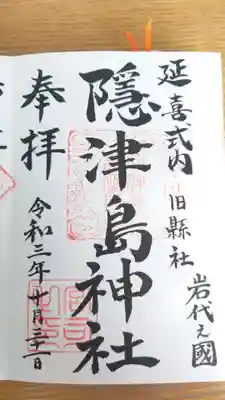 岩代之國
延喜式内 旧縣社
隠津島神社
奉拝
令和三年十月三十一日